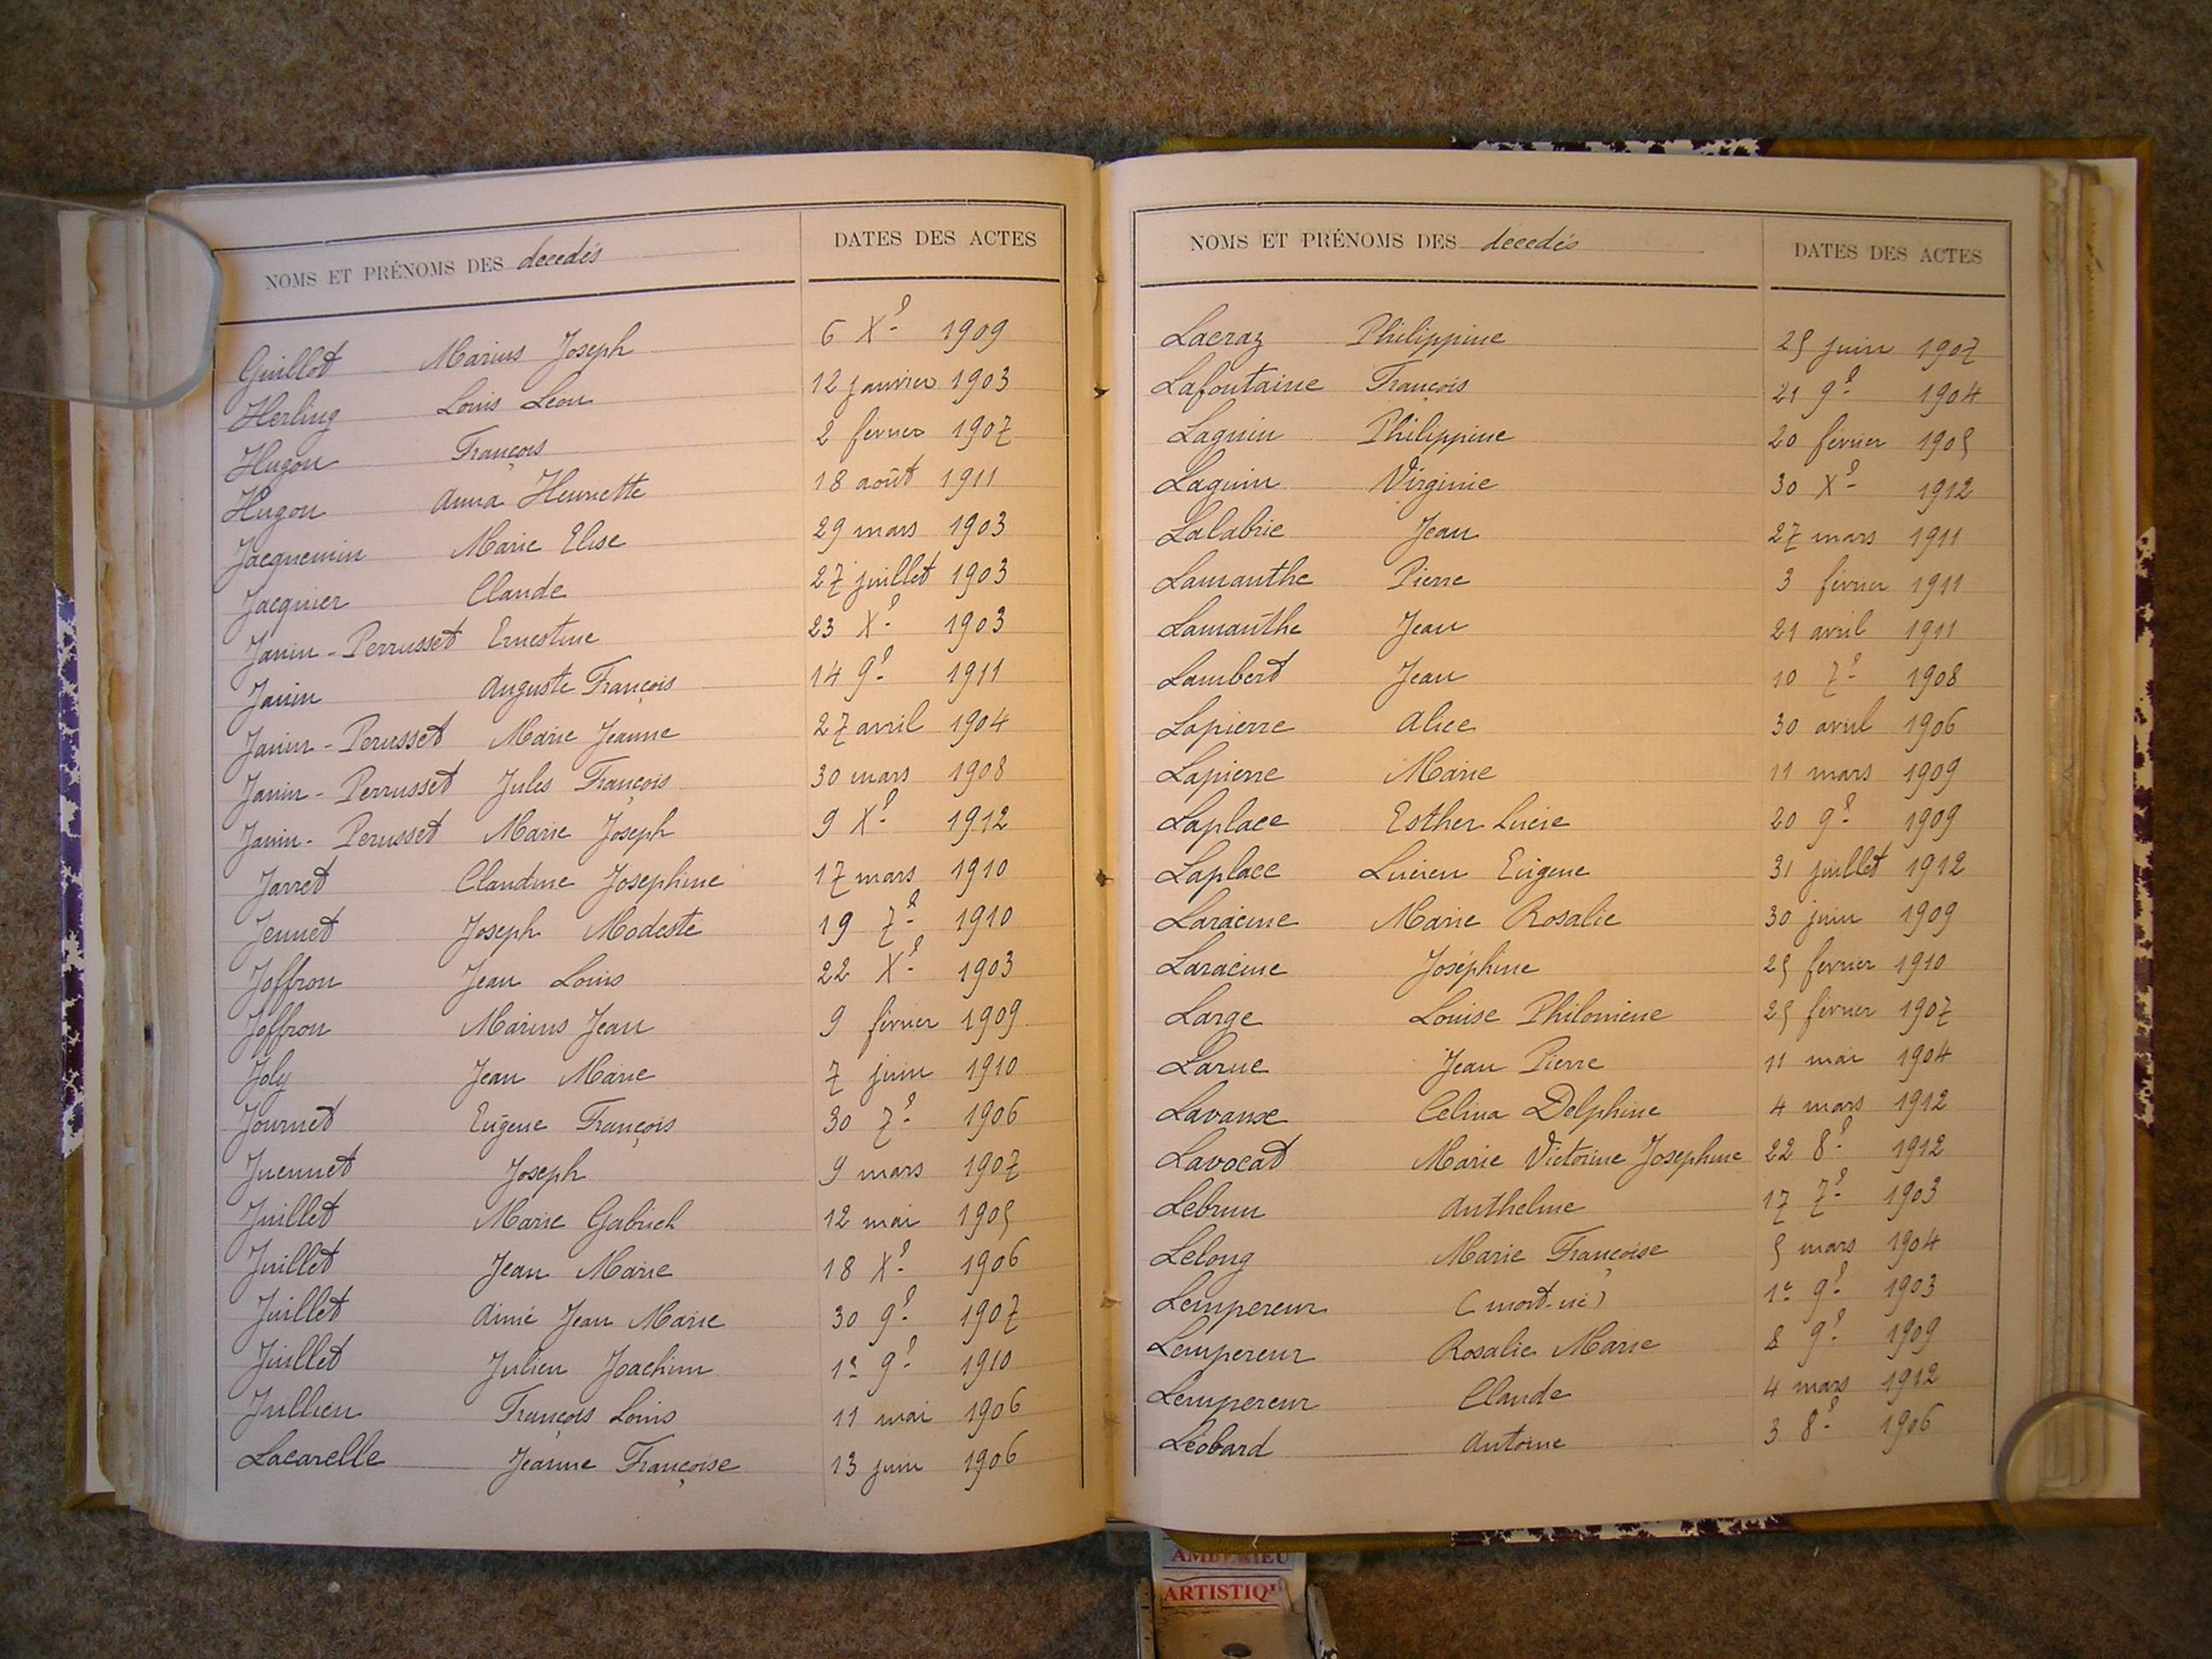 NOMS ET PRÉNOMS DES decedés DATES DES ACTES
Guillot Marius Joseph 6 Xe 1909
Herling Louis Leon 12 janvier 1903
Hugon François 2 février 1907
Hugon Anna Henriette 18 août 1911
Jacquemin Marie Elise 29 mars 1903
Jacquier Claude 27 juillet 1903
Janin-Perrusset Ernestine 23 Xe 1903
Janin Auguste François 14 9e 1911
Janin-Perusset Marie Jeanne 27 avril 1904
Janin-Perrusset Jules François 30 mars 1908
Janin-Perusset Marie Joseph 9 Xe 1912
Jarret Claudine Josephine 17 mars 1910
Jeunet Joseph Modeste 19 7e 1910
Joffron Jean Louis 22 Xe 1903
Joffron Marius Jean 9 février 1909
Joly Jean Marie 7 juin 1910
Journet Eugène François 30 7e 1906
Juennet Joseph 9 mars 1907
Juillet Marie Gabriel 12 mai 1905
Juillet Jean Marie 18 Xe 1906
Juillet Aimé Jean Marie 30 9e 1907
Juillet Julien Joachim 1e 9e 1910
Jullien François Louis 11 mai 1906
Lacarelle Jeanne Françoise 13 juin 1906
NOMS ET PRÉNOMS DES decedés DATES DES ACTES
Lacraz Philippine 25 juin 1907
Lafontaine François 21 9e 1904
Laguin Philippine 20 février 1905
Laguin Virginie 30 Xe 1912
Lalabrie Jean 27 mars 1911
Lamanthe Pierre 3 février 1911
Lamanthe Jean 21 avril 1911
Lambert Jean 10 7e 1908
Lapierre Alice 30 avril 1906
Lapierre Marie 11 mars 1909
Laplace Esther Lucie 20 9e 1909
Laplace Lucien Eugene 31 juillet 1912
Laracine Marie Rosalie 30 juin 1909
Laracine Joséphine 25 février 1910
Large Louise Philomene 25 février 1907
Larue Jean Pierre 11 mai 1904
Lavanse Celina Delphine 4 mars 1912
Lavocat Marie Victorine Josephine 22 8e 1912
Lebrun Anthelme 17 7e 1903
Lelong Marie Françoise 5 mars 1904
Lempereur (mort-né) 1e 9e 1903
Lempereur Rosalie Marie 8 9e 1909
Lempereur Claude 4 mars 1912
Léobard Antoine 3 8e 1906
AMBERIEU
ARTISTIQU